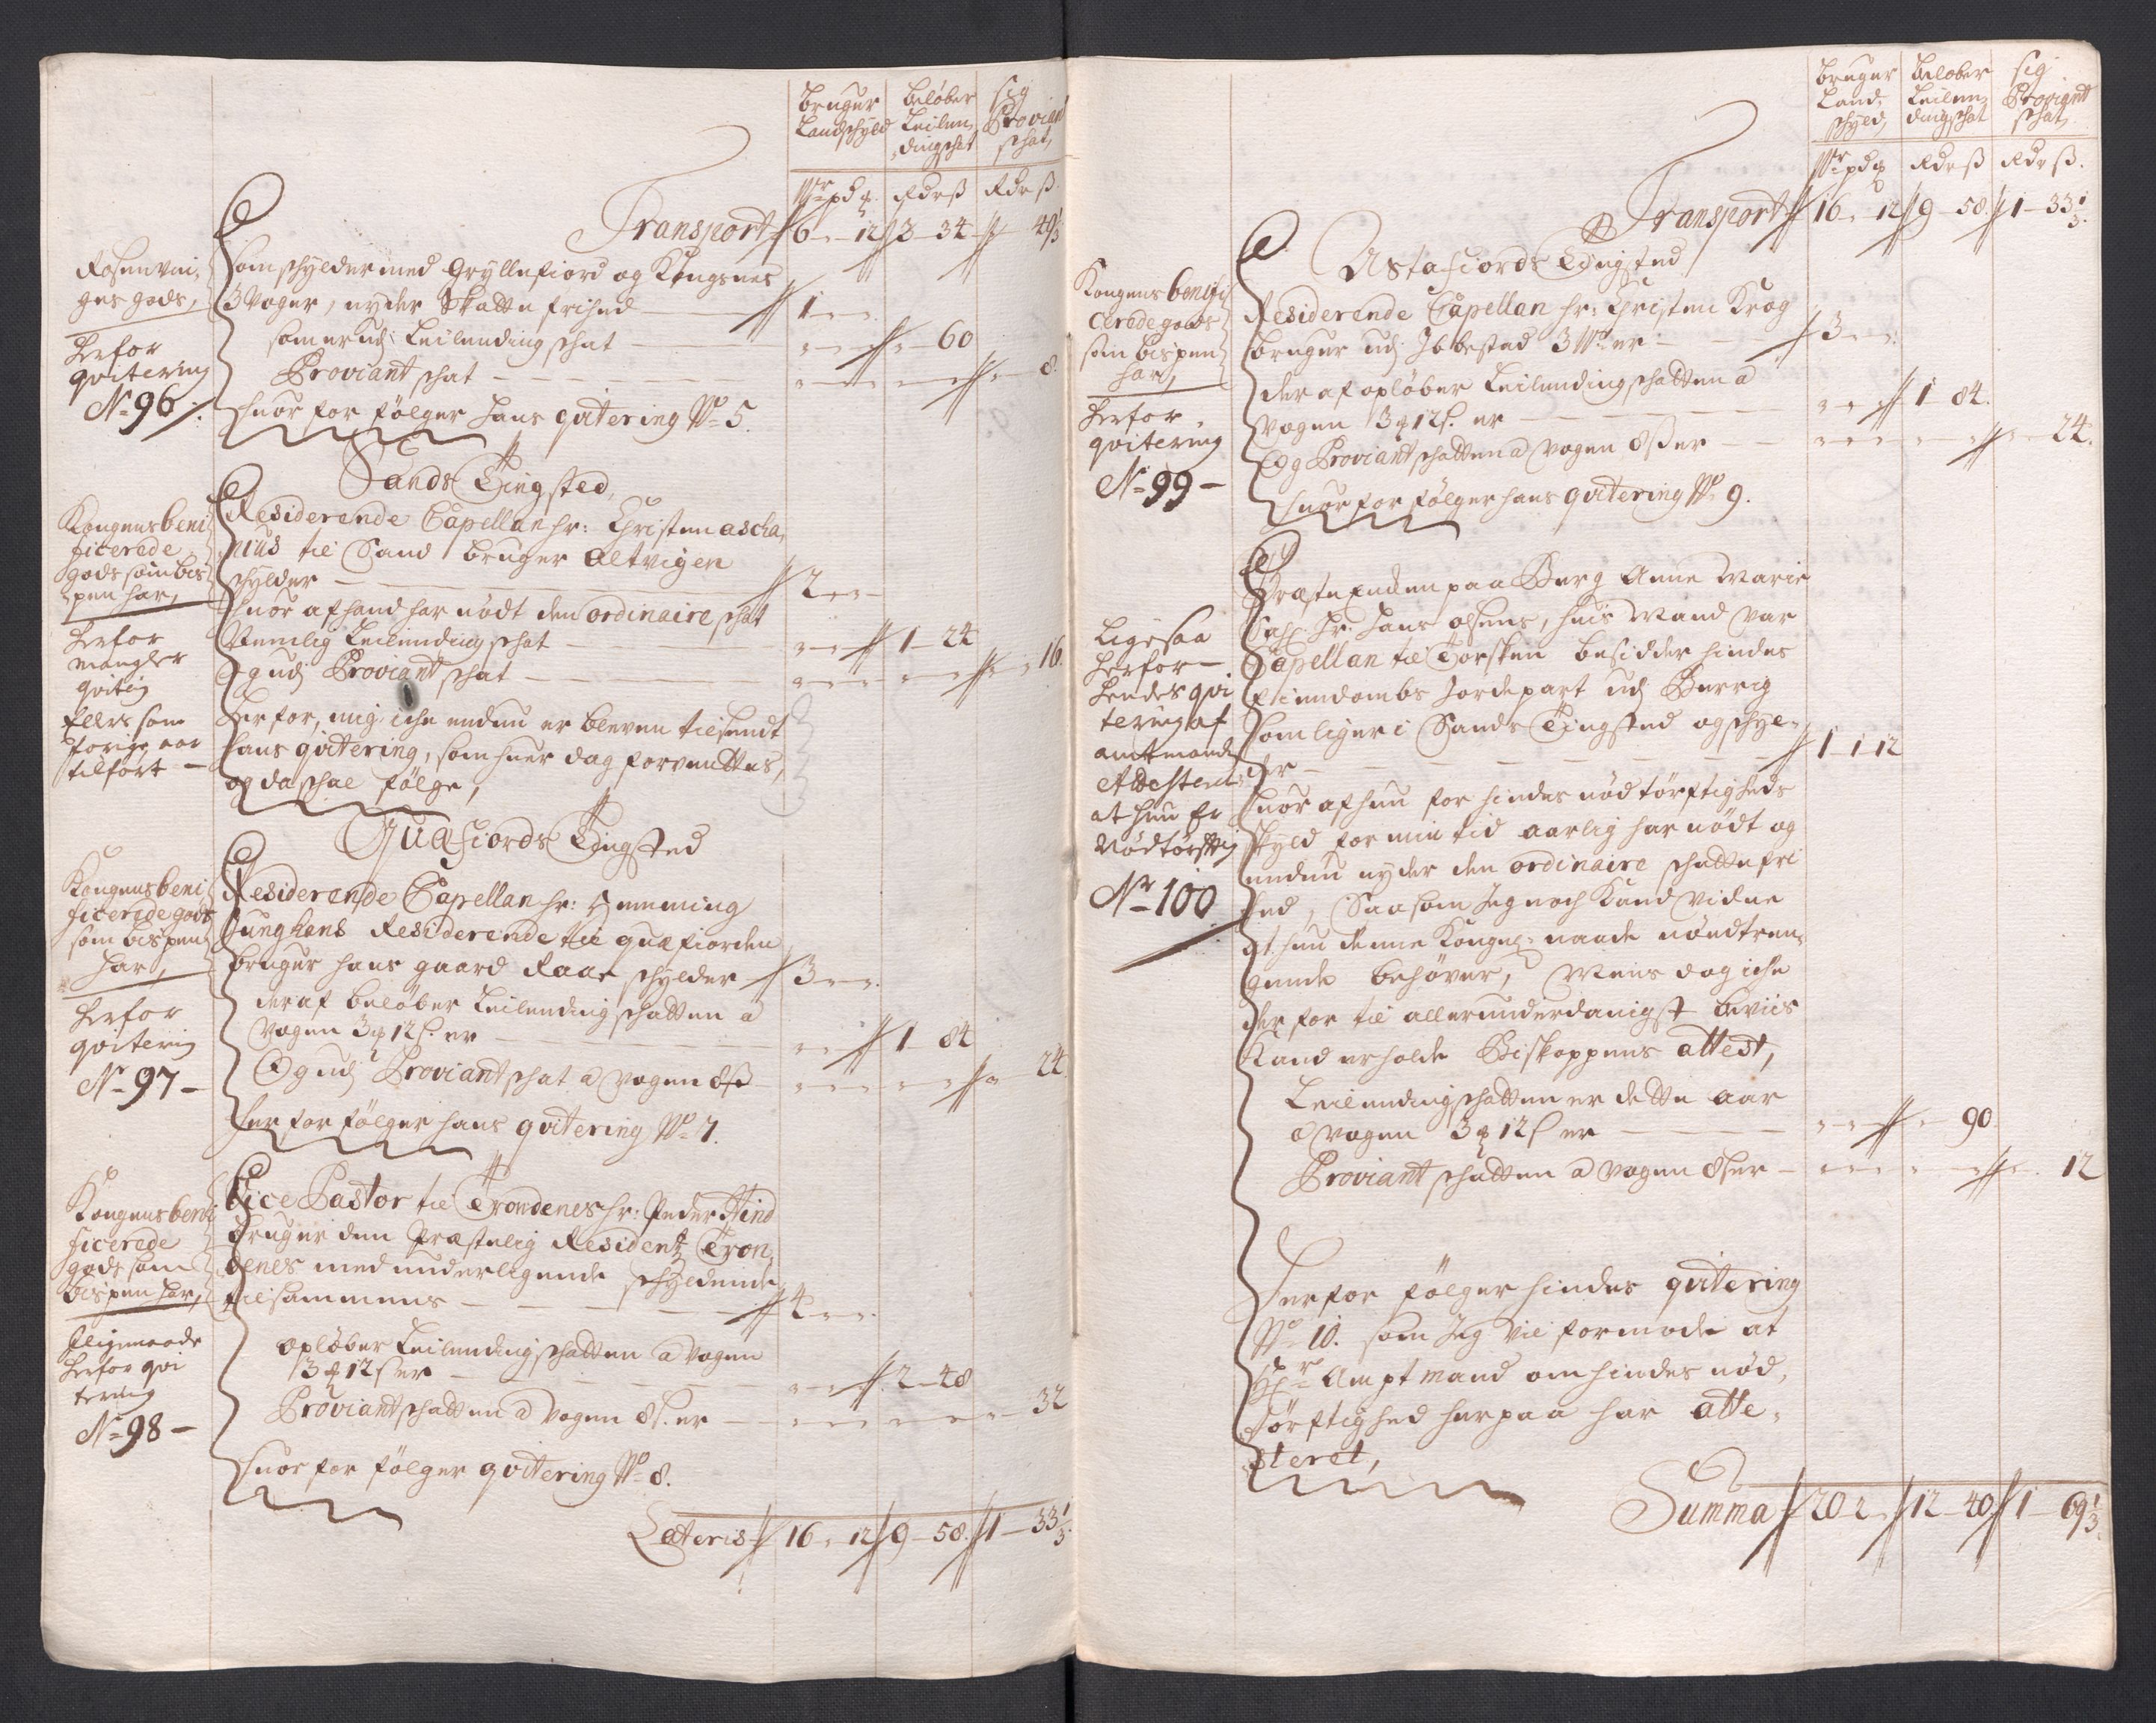 bruger beløber sig
Landschyld Leilen- Proviant
dingschat schat,
Wr pd # Rdr ß Rdr ß
Transport 6 - 12 3 - 34 - 49 1/3
Rosenvin-
ges gods,
Herfor
qvitering
No 96
som schylder med Gryllefiord og Kongsnes
3 Voger, nyder Skatte frihed - 1 - -
som er udj Leilendingschat - - 60
Proviant schat - - 8.
huor for følger hans qvitering No 5.
Sands Tingsted,
Kongens beni
ficerede
gods som bis
pen har,
Herfor
mangler
qvitering
Ellers som
forige aar
tilført -
Residerende Capellan hr: Christen ascha
nius til Sand bruger Altvigen
schylder - 2 - -
huor af hand har nødt den ordinaire schat
Nemlig Leilendingschat - 1 - 24
Og udj Proviantschat - - 16.
Herfor, mig iche endnu er bleven tilsendt
hans qvitering, som huer dag forventtes,
og da schal følge,
Quæfiords Tingsted
Kongens beni
ficerede gods
som bispen
har,
Herfor
qviterin
No 97 -
Residerende Capellan hr: Henning
Junghans Residerende til quæfiorden
bruger hans gaard Raae schylder 3 - -
deraf beløber Leilendingschatten a
Vogen 3 # 12 ß. er - 1 - 84
Og udj Proviantschat a Vogen 8 ß - 24
Herfor følger hans qvitering No 7.
Kongens beni
ficerede
gods som
bispen har,
Eligemaade
Herfor qvi
tering
No 98 -
Vice Pastor til Trondenes hr: Peder Hind
bruger den Præstelig Residentz Tron-
denes med underligende schyldende
tilsammens - 4 - -
opløber Leilendingschatten a Vogen
3 # 12 ß er - 2 - 48
Proviantschatten a Vogen 8 ß. er - 32
huor for følger qvitering No 8.
Lateris 16 - 12 9 - 58 1 - 33 1/3
bruger beløber sig
Land- Leilen- Proviantt
schyld, dingschat schat,
Wr pd # Rdr ß Rdr ß.
Transport 16 - 12 9 - 58 1 - 33 1/3
Astafiords Tingsted
Kongens benifi
cerede gods
som bispen
har,
Herfor
qvitering
No 99 -
Residerende Capellan hr: Christen Krog
bruger udj Ibbestad 3 Wr er - 3 - -
der af opløber Leilendingschatten a
Vogen 3 # 12 ß. er - 1 84.
Og Proviantschatten a Vogen 8 ß er - 24.
huor for følger hans qvitering No 9.
Ligesaa
Herfor -
Hendes qvi
tering af
amtmanden
Attesteret
at hun Er
Nødtørfftig
No 100
Præste Enchen paa Berg Anne Marie
Sahl. Hr: Hans olsens, huis Mand var
Capellan til Torsken besidder hindes
Eiendombs Jordepart udj Berrig
som liger i Sands Tingsted og schyl-
der - 1 - 1 - 12
huor af hun for hindes nødtørftigheds
skyld for min tid aarlig har nødt og
endnu nyder den ordinaire schattefri
hed, Saasom Jeg noch Kand vidne
at hun denne Kongel: naade nøedtren-
gende behøver, Mens dog iche
der for til allerunderdanigst beviis
Kand erholde Biskoppens attest,
Leilendingschatten er dette aar
a Vogen 3 # 12 ß er - 90
Proviantschatten a Vogen 8 ß er - 12
Herfor følger hindes qvitering
No 10. som Jeg vil formode at
Hr Amptmand om hindes nød-
tørftighed herpaa har atte-
steret,
Summa 20 2 - 12 - 40 1 - 69 1/3